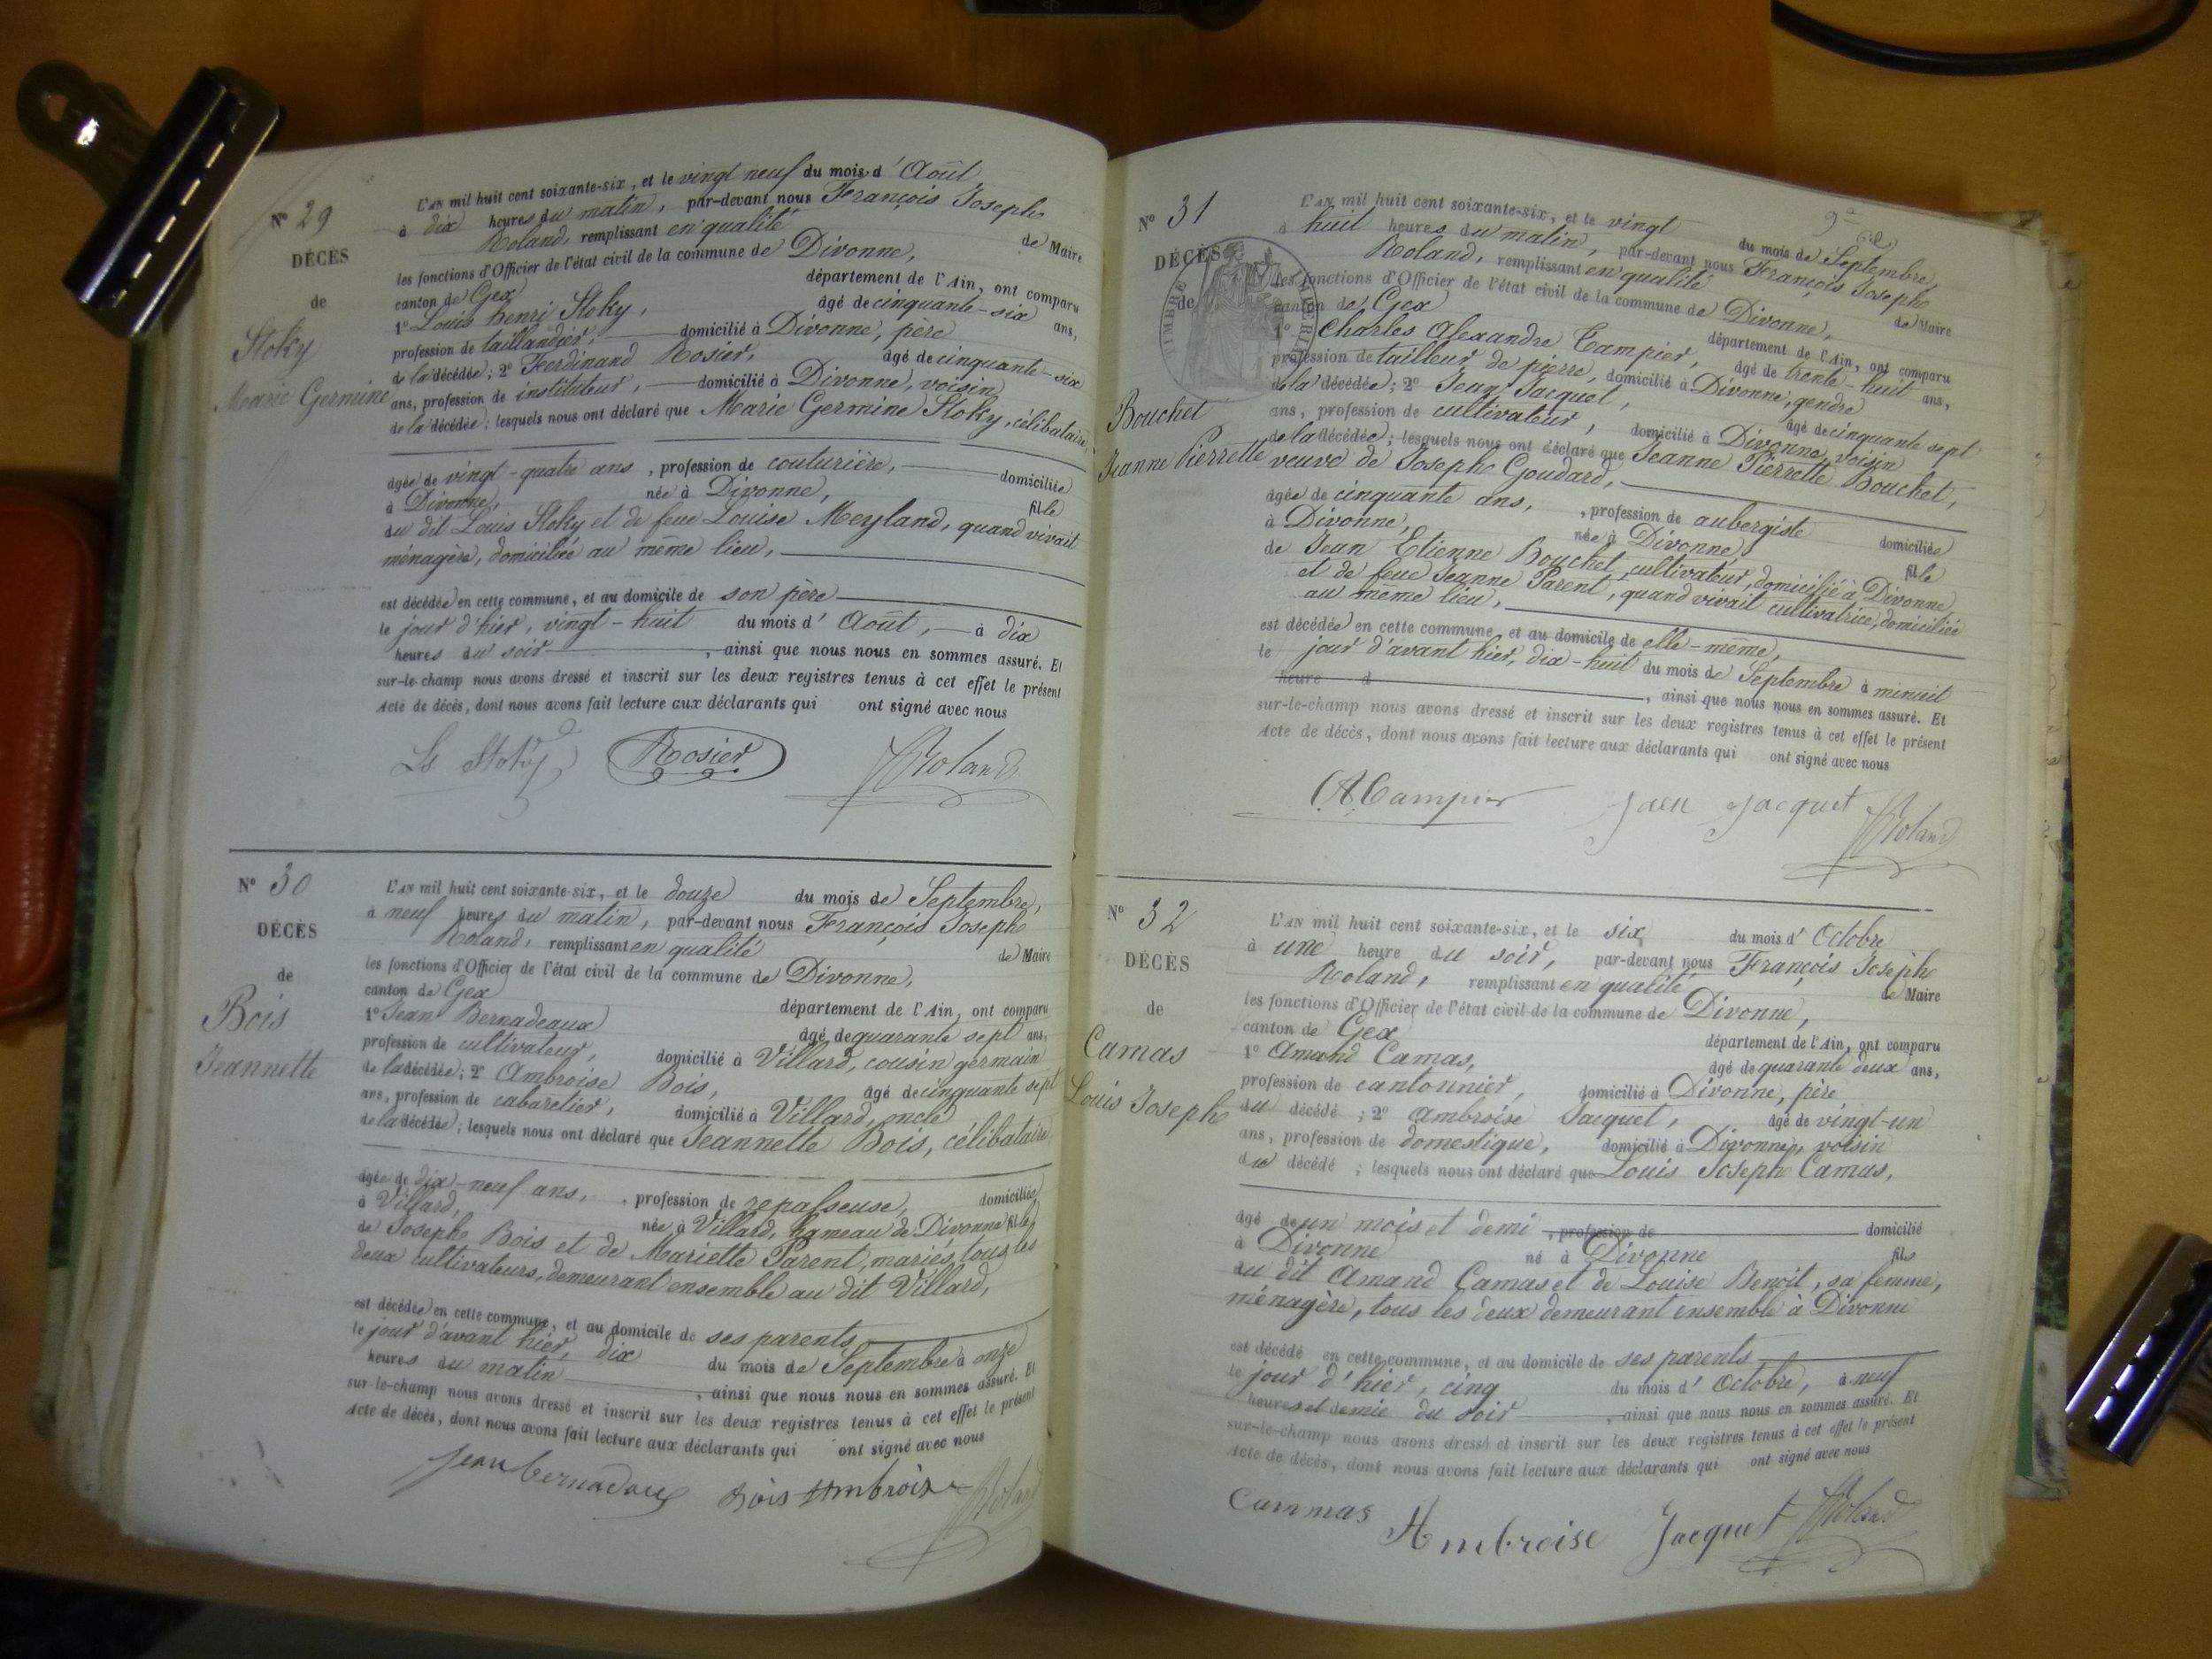 N° 29
DÉCÈS
de
Stoky
Marie Germine
L'AN mil huit cent soixante-six, et le vingt neuf du mois d'Août
à dix heures du matin, par-devant nous François Joseph
Roland, remplissant en qualité de Maire
les fonctions d'Officier de l'état civil de la commune de Divonne,
canton de Gex département de l'Ain, ont comparu
1° Louis henri Stoky, âgé de cinquante-six ans,
profession de taillandier, domicilié à Divonne, père
de la décédée; 2° Ferdinand Rosier, âgé de cinquante-six
ans, profession de instituteur, domicilié à Divonne, voisin
de la décédée; lesquels nous ont déclaré que Marie Germine Stoky, célibataire,
agée de vingt-quatre ans, profession de couturière, domiciliée
à Divonne, née à Divonne, fille
du dit Louis Stoky et de feue Louise Meyland, quand vivait
ménagère, domiciliée au même lieu,
est décédée en cette commune, et au domicile de son père
le jour d'hier, vingt-huit du mois d'Août, à dix
heures du soir, ainsi que nous nous en sommes assuré. Et
sur-le-champ nous avons dressé et inscrit sur les deux registres tenus à cet effet le présent
Acte de décès, dont nous avons fait lecture aux déclarants qui ont signé avec nous
Ls Stoky Rosier Roland
N° 30
DÉCÈS
de
Bois
Jeannette
L'AN mil huit cent soixante-six, et le douze du mois de Septembre,
à neuf heures du matin, par-devant nous François Joseph
Roland, remplissant en qualité de Maire
les fonctions d'Officier de l'état civil de la commune de Divonne,
canton de Gex département de l'Ain, ont comparu
1° Jean Bernadeaux âgé de quarante sept ans,
profession de cultivateur, domicilié à Villard, cousin germain
de la décédée; 2° Ambroise Bois, âgé de cinquante sept
ans, profession de cabaretier, domicilié à Villard, oncle
de la décédée; lesquels nous ont déclaré que Jeannette Bois, célibataire
agée de dix-neuf ans, profession de repasseuse, domiciliée
à Villard, née à Villard, hameau de Divonne fille
de Joseph Bois et de Mariette Parent, mariés, tous les
deux cultivateurs, demeurant ensemble au dit Villard,
est décédée en cette commune, et au domicile de ses parents
le jour d'avant hier, dix du mois de Septembre à onze
heures du matin, ainsi que nous nous en sommes assuré. Et
sur-le-champ nous avons dressé et inscrit sur les deux registres tenus à cet effet le présent
Acte de décès, dont nous avons fait lecture aux déclarants qui ont signé avec nous
Jean bernadaux Bois Ambroise Roland
N° 31
DÉCÈS
de
TIMBRE IMPÉRIAL
Bouchet
Jeanne Pierrette
L'AN mil huit cent soixante-six, et le vingt du mois de Septembre,
à huit heures du matin, par-devant nous François Joseph
Roland, remplissant en qualité de Maire
les fonctions d'Officier de l'état civil de la commune de Divonne,
canton de Gex département de l'Ain, ont comparu
1° Charles Alexandre Campier, âgé de trente-huit ans,
profession de tailleur de pierre, domicilié à Divonne, gendre
de la décédée; 2° Jean Jacquet, âgé de cinquante sept
ans, profession de cultivateur, domicilié à Divonne, voisin
de la décédée; lesquels nous ont déclaré que Jeanne Pierrette Bouchet,
veuve de Joseph Goudard,
agée de cinquante ans, profession de aubergiste domiciliée
à Divonne, née à Divonne, fille
de Jean Etienne Bouchet, cultivateur, domicilié à Divonne,
et de feue Jeanne Parent, quand vivait cultivatrice, domiciliée
au même lieu,
est décédée en cette commune, et au domicile de elle-même,
le jour d'avant hier, dix-huit du mois de Septembre à minuit
heure d, ainsi que nous nous en sommes assuré. Et
sur-le-champ nous avons dressé et inscrit sur les deux registres tenus à cet effet le présent
Acte de décès, dont nous avons fait lecture aux déclarants qui ont signé avec nous
A Campier Jaen Jacquet Roland
N° 32
DÉCÈS
de
Camas
Louis Joseph
L'AN mil huit cent soixante-six, et le six du mois d'Octobre
à une heure du soir, par-devant nous François Joseph
Roland, remplissant en qualité de Maire
les fonctions d'Officier de l'état civil de la commune de Divonne,
canton de Gex département de l'Ain, ont comparu
1° Amand Camas, âgé de quarante deux ans,
profession de cantonnier, domicilié à Divonne, père
du décédé; 2° Ambroise Jacquet, âgé de vingt-un
ans, profession de domestique, domicilié à Divonne, voisin
du décédé; lesquels nous ont déclaré que Louis Joseph Camas,
âgé de un mois et demi, profession de domicilié
à Divonne né à Divonne fils
du dit Amand Camas et de Louise Benoit, sa femme,
ménagère, tous les deux demeurant ensemble à Divonne
est décédé en cette commune, et au domicile de ses parents
le jour d'hier, cinq du mois d'Octobre, à neuf
heures et demie du soir, ainsi que nous nous en sommes assuré. Et
sur-le-champ nous avons dressé et inscrit sur les deux registres tenus à cet effet le présent
Acte de décès, dont nous avons fait lecture aux déclarants qui ont signé avec nous
Cammas Ambroise Jacquet Roland